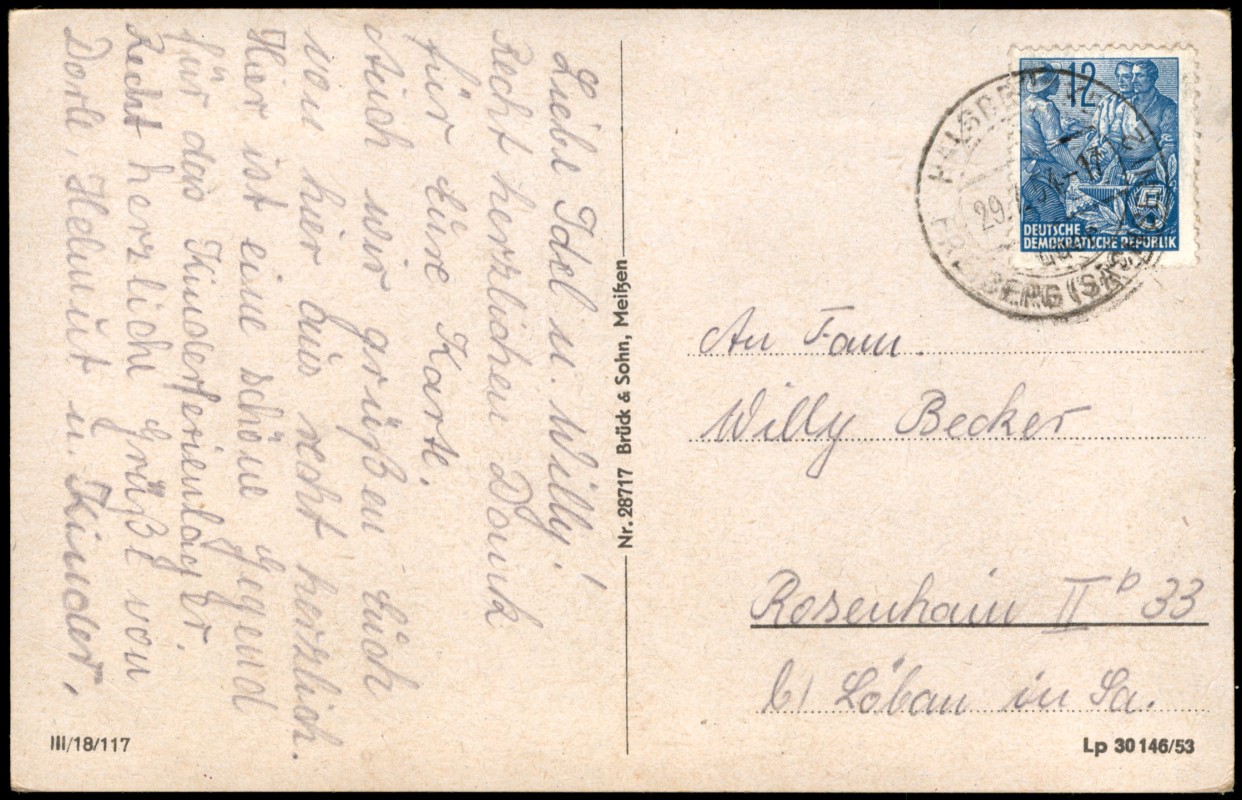 Liebe Idel u. Willy!
Recht herzlichen Dank
für Eure Karte.
Auch wir grüßen Euch
von hier aus recht herzlich.
Hier ist eine schöne Gegend
für das Kinderferienlager.
Recht herzliche Grüße von
Dorle, Helmut u. Kinder.
III/18/117
Nr. 28717 Brück & Sohn, Meißen
12
DEUTSCHE
DEMOKRATISCHE REPUBLIK
FREIBERG (SACHS)
An Fam.
Willy Becker
Rosenhain II b 33
b/ Löbau in Sa.
Lp 30146/53